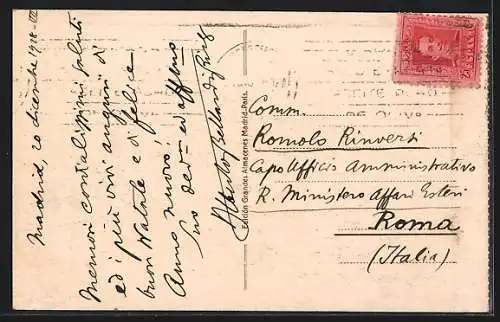 Madrid, 20 dicembre 1928-VII
Memori cordialissimi saluti
ed i più vivi auguri di
buon Natale e di felice
Anno nuovo!
Suo dev.mo ed aff.mo
Alberto
Edición Grandes Almacenes Madrid-Paris.
Comm.
Romolo Rinversi
Capo Ufficio Amministrativo
R. Ministero Affari Esteri
Roma
(Italia)